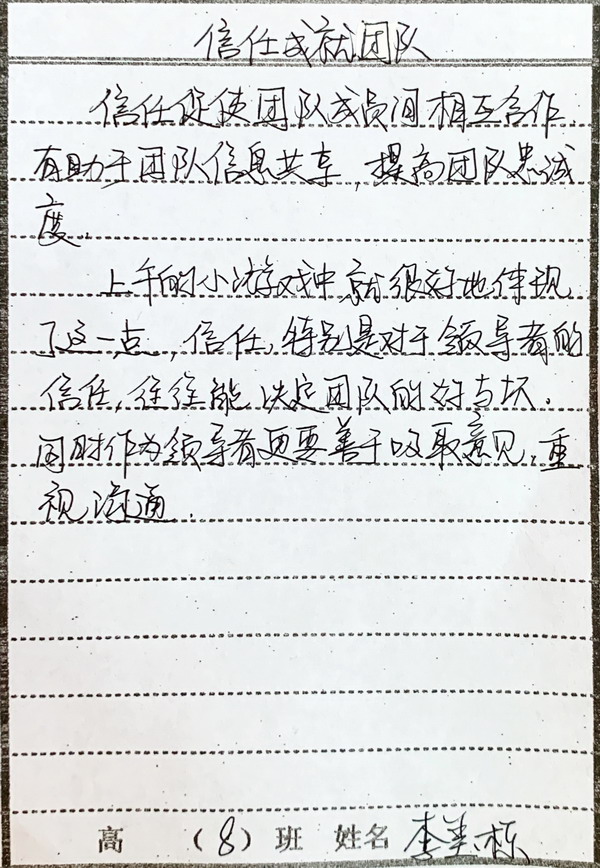 信任成就团队
信任促使团队成员间相互合作,
有助于团队信息共享,提高团队忠诚
度.
上午的小游戏中,就很好地体现
了这一点,信任,特别是对于领导者的
信任,往往能决定团队的好与坏.
同时作为领导者更要善于吸取意见,重
视沟通.
高 (8)班 姓名 李